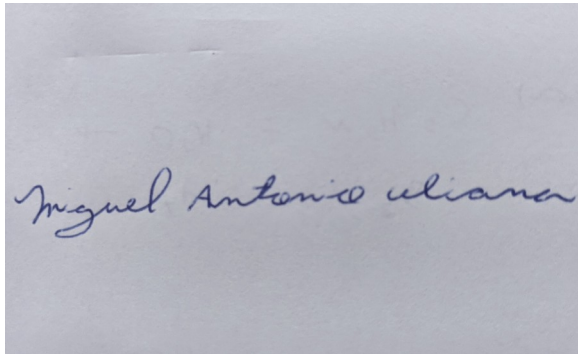 Miguel Antonio uliana